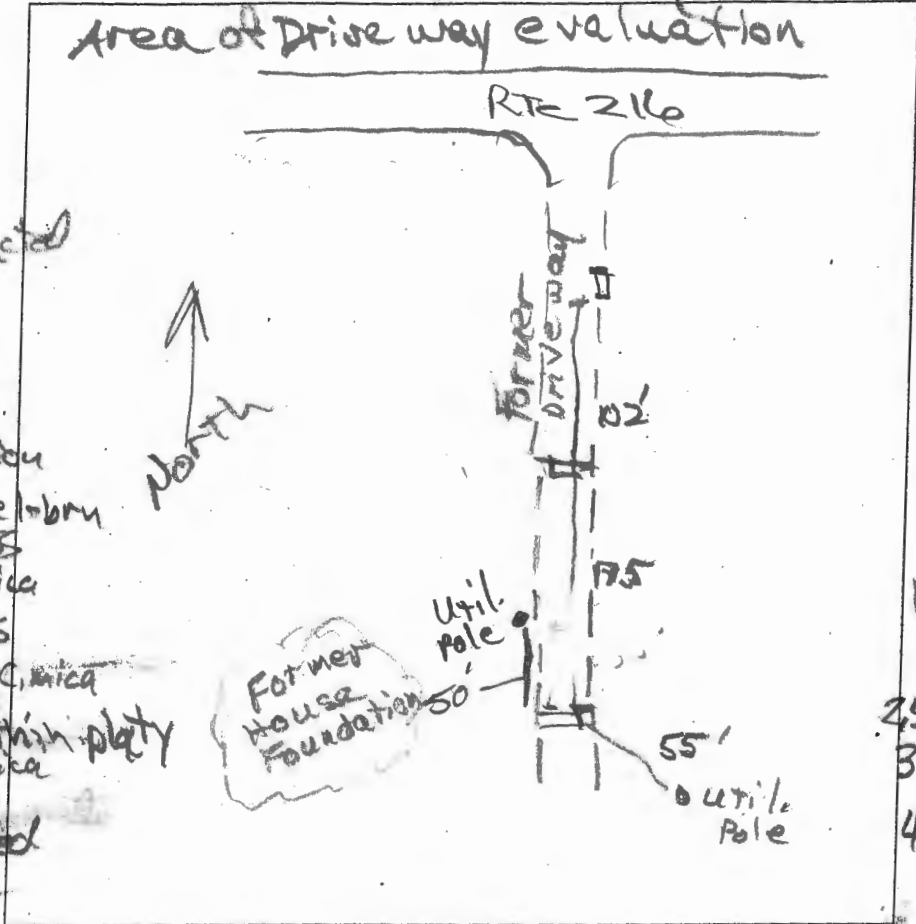 Area of Driveway evaluation
RTE 216
North
Former
Driveway
102'
175
Util.
Pole
50'
Former
House
Foundation
55'
util.
Pole
mica
thin platy